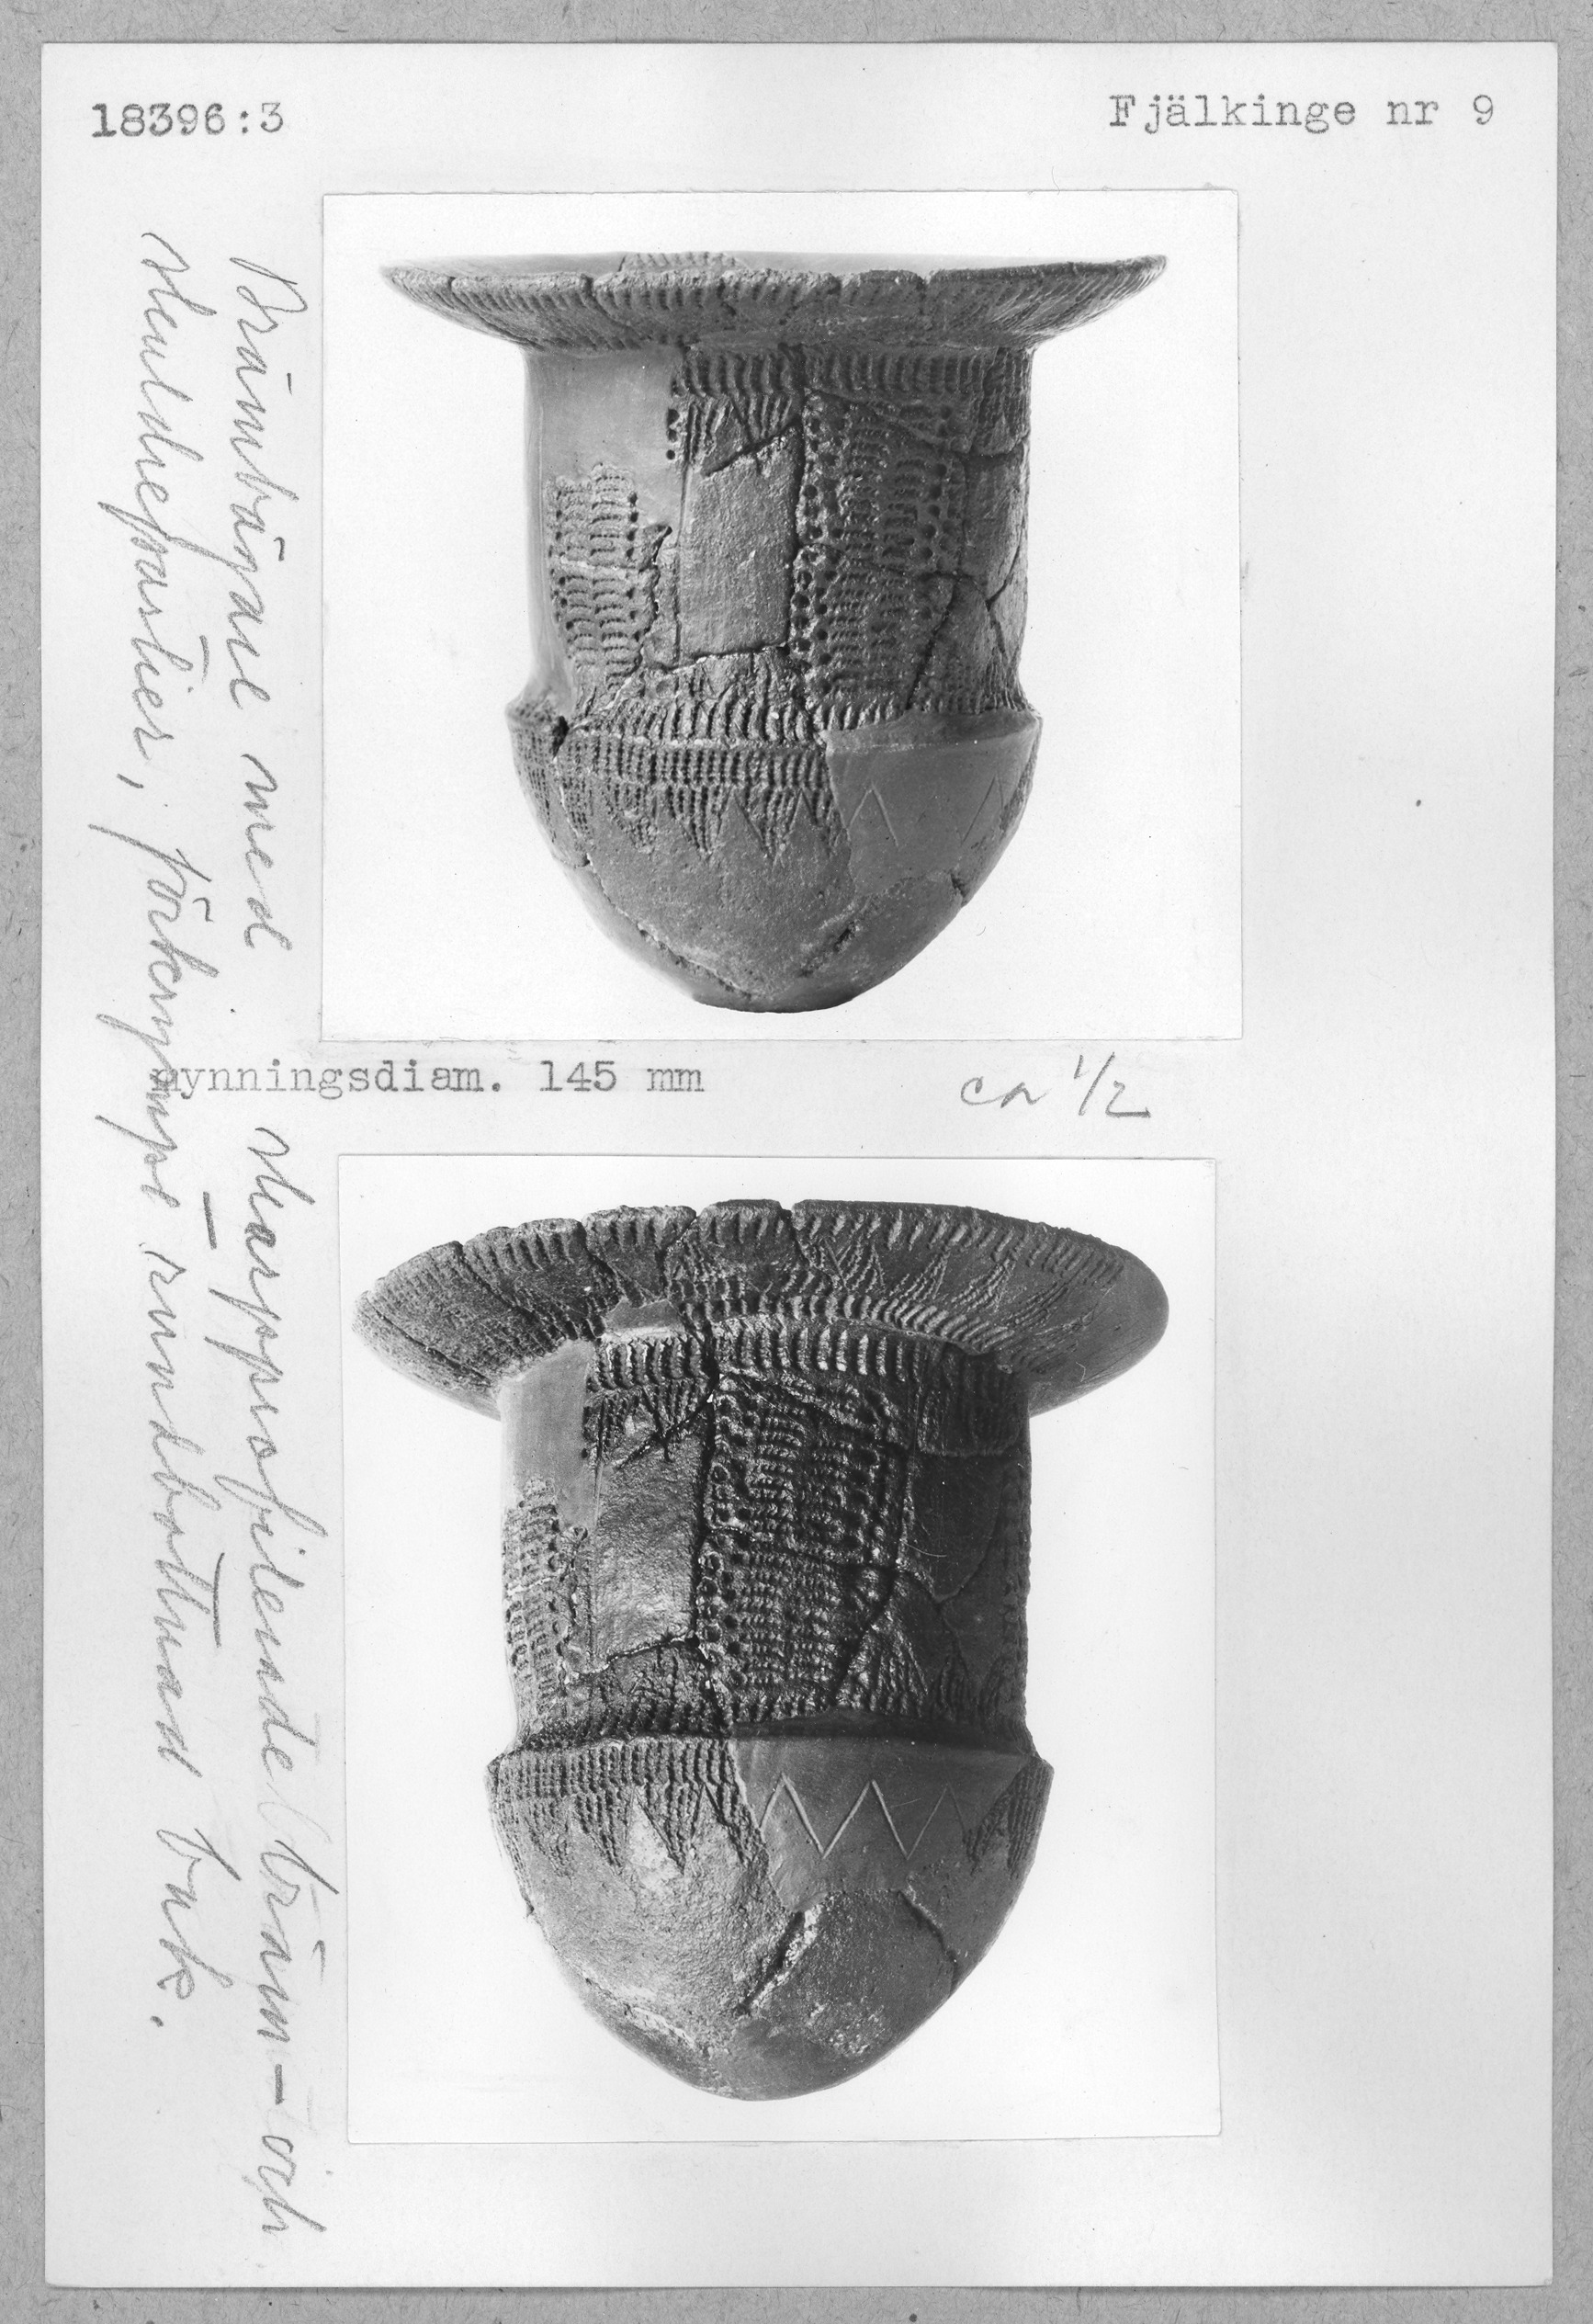 18396:3
Fjälkinge nr 9
mynningsdiam. 145 mm
ca 1/2
Brämbägare med skarpprofilerade bräm- och
skuldrepartier, förkrympt rundbottnad buk.